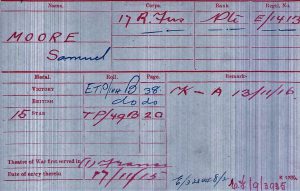 Name. Corps. Rank. Regtl. No.
MOORE 17 R. Fus Pte E/1413
Samuel
Medal. Roll. Page. Remarks
VICTORY 38. K - A 13/11/16
BRITISH do do
15 STAR TP/49B 20
Theatre of War first served in (1) France
Date of entry therein 17/11/15